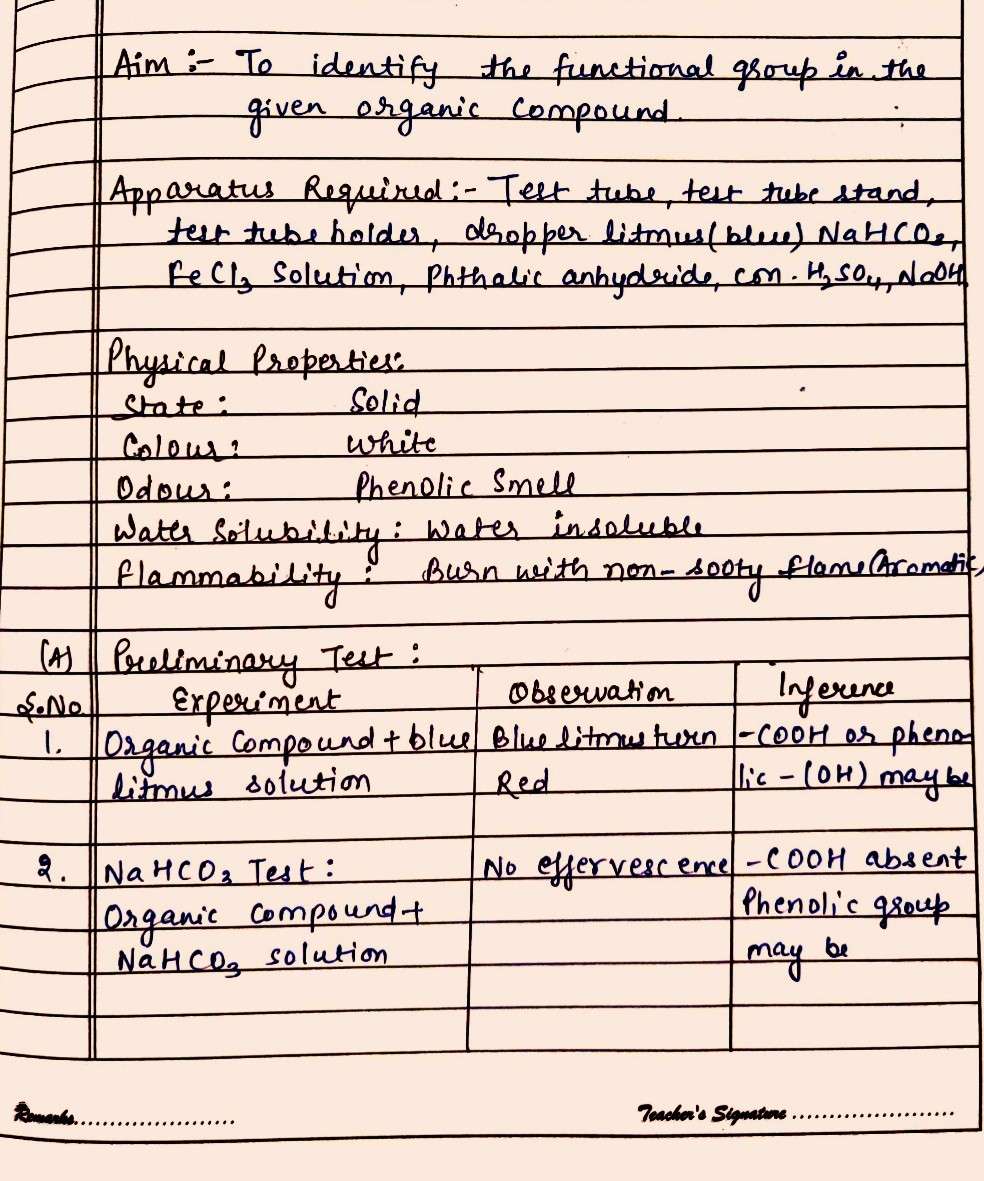 Aim :- To identify the functional group in the
given organic compound.
Apparatus Required :- Test tube, test tube stand,
test tube holder, dropper litmus (blue) NaHCO3,
FeCl3 Solution, Phthalic anhydride, con. H2SO4, NaOH
Physical Properties:
State : Solid
Colour : White
Odour : Phenolic Smell
Water Solubility : Water insoluble
Flammability : Burn with non-sooty flame (Aromatic)
(A) Preliminary Test :
S.No. Experiment Observation Inference
1. Organic Compound + blue Blue litmus turn -COOH or pheno
litmus solution Red lic - (OH) may be
2. NaHCO3 Test : No effervescence -COOH absent
Organic compound + Phenolic group
NaHCO3 solution may be
Remarks...................... Teacher's Signature ......................